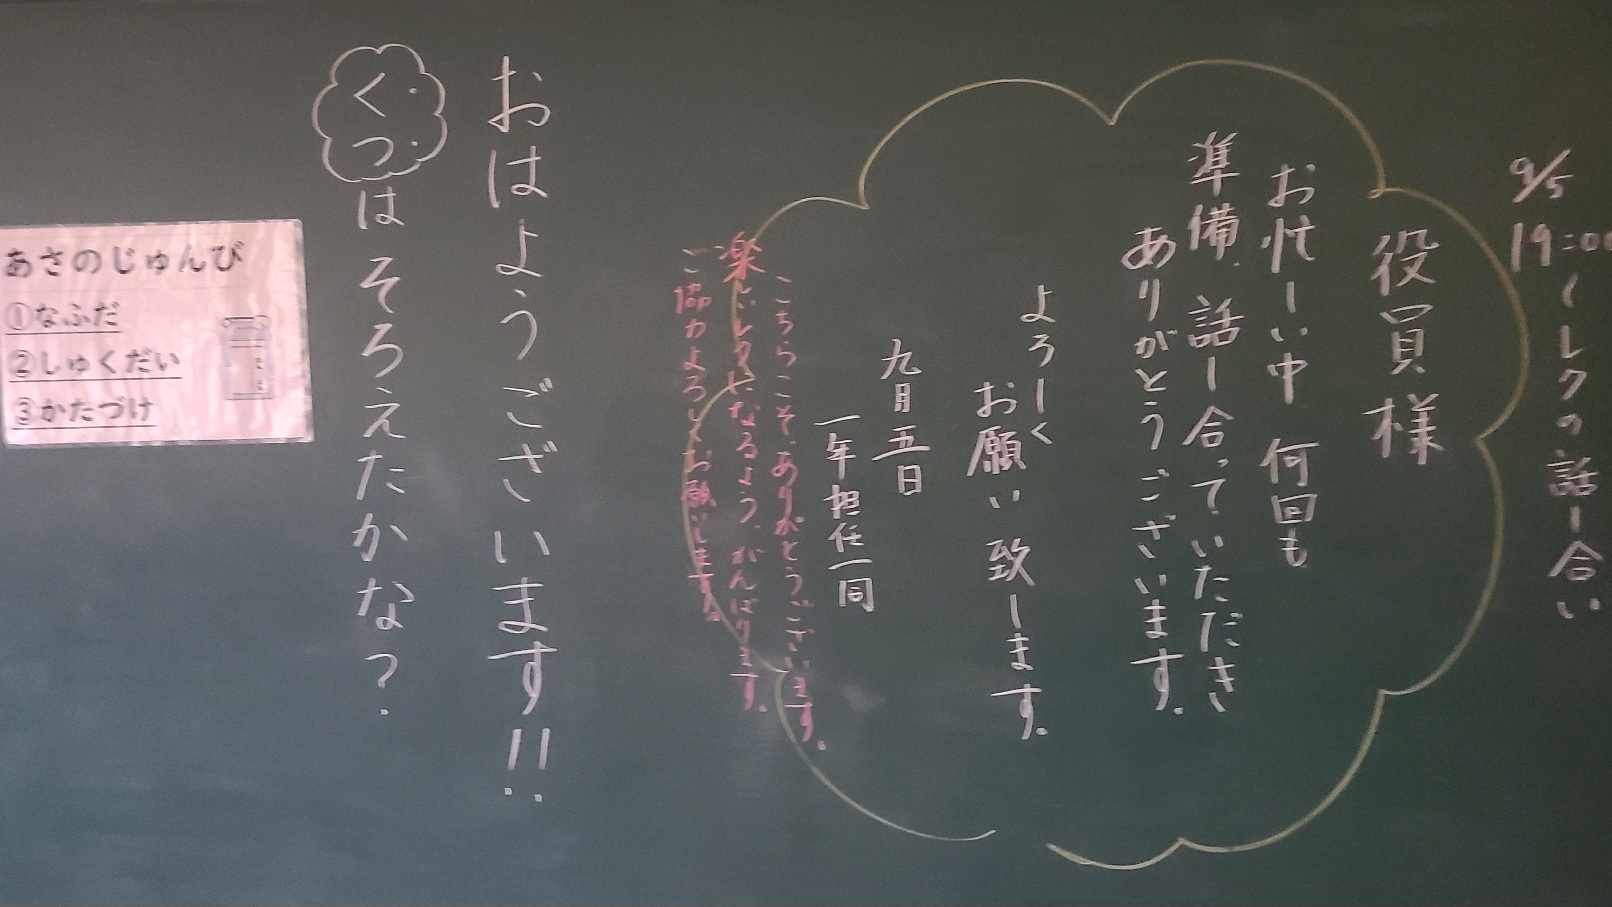 9/5 19:00〜レクの話し合い
役員様
お忙しい中 何回も
準備、話し合っていただき
ありがとうございます。
よろしく
お願い致します。
九月五日
一年担任一同
こちらこそ、ありがとうございます。
楽しいレクになるよう、がんばります。
ご協力よろしくお願いします。
おはようございます!!
くつはそろえたかな?
あさのじゅんび
①なふだ
②しゅくだい
③かたづけ